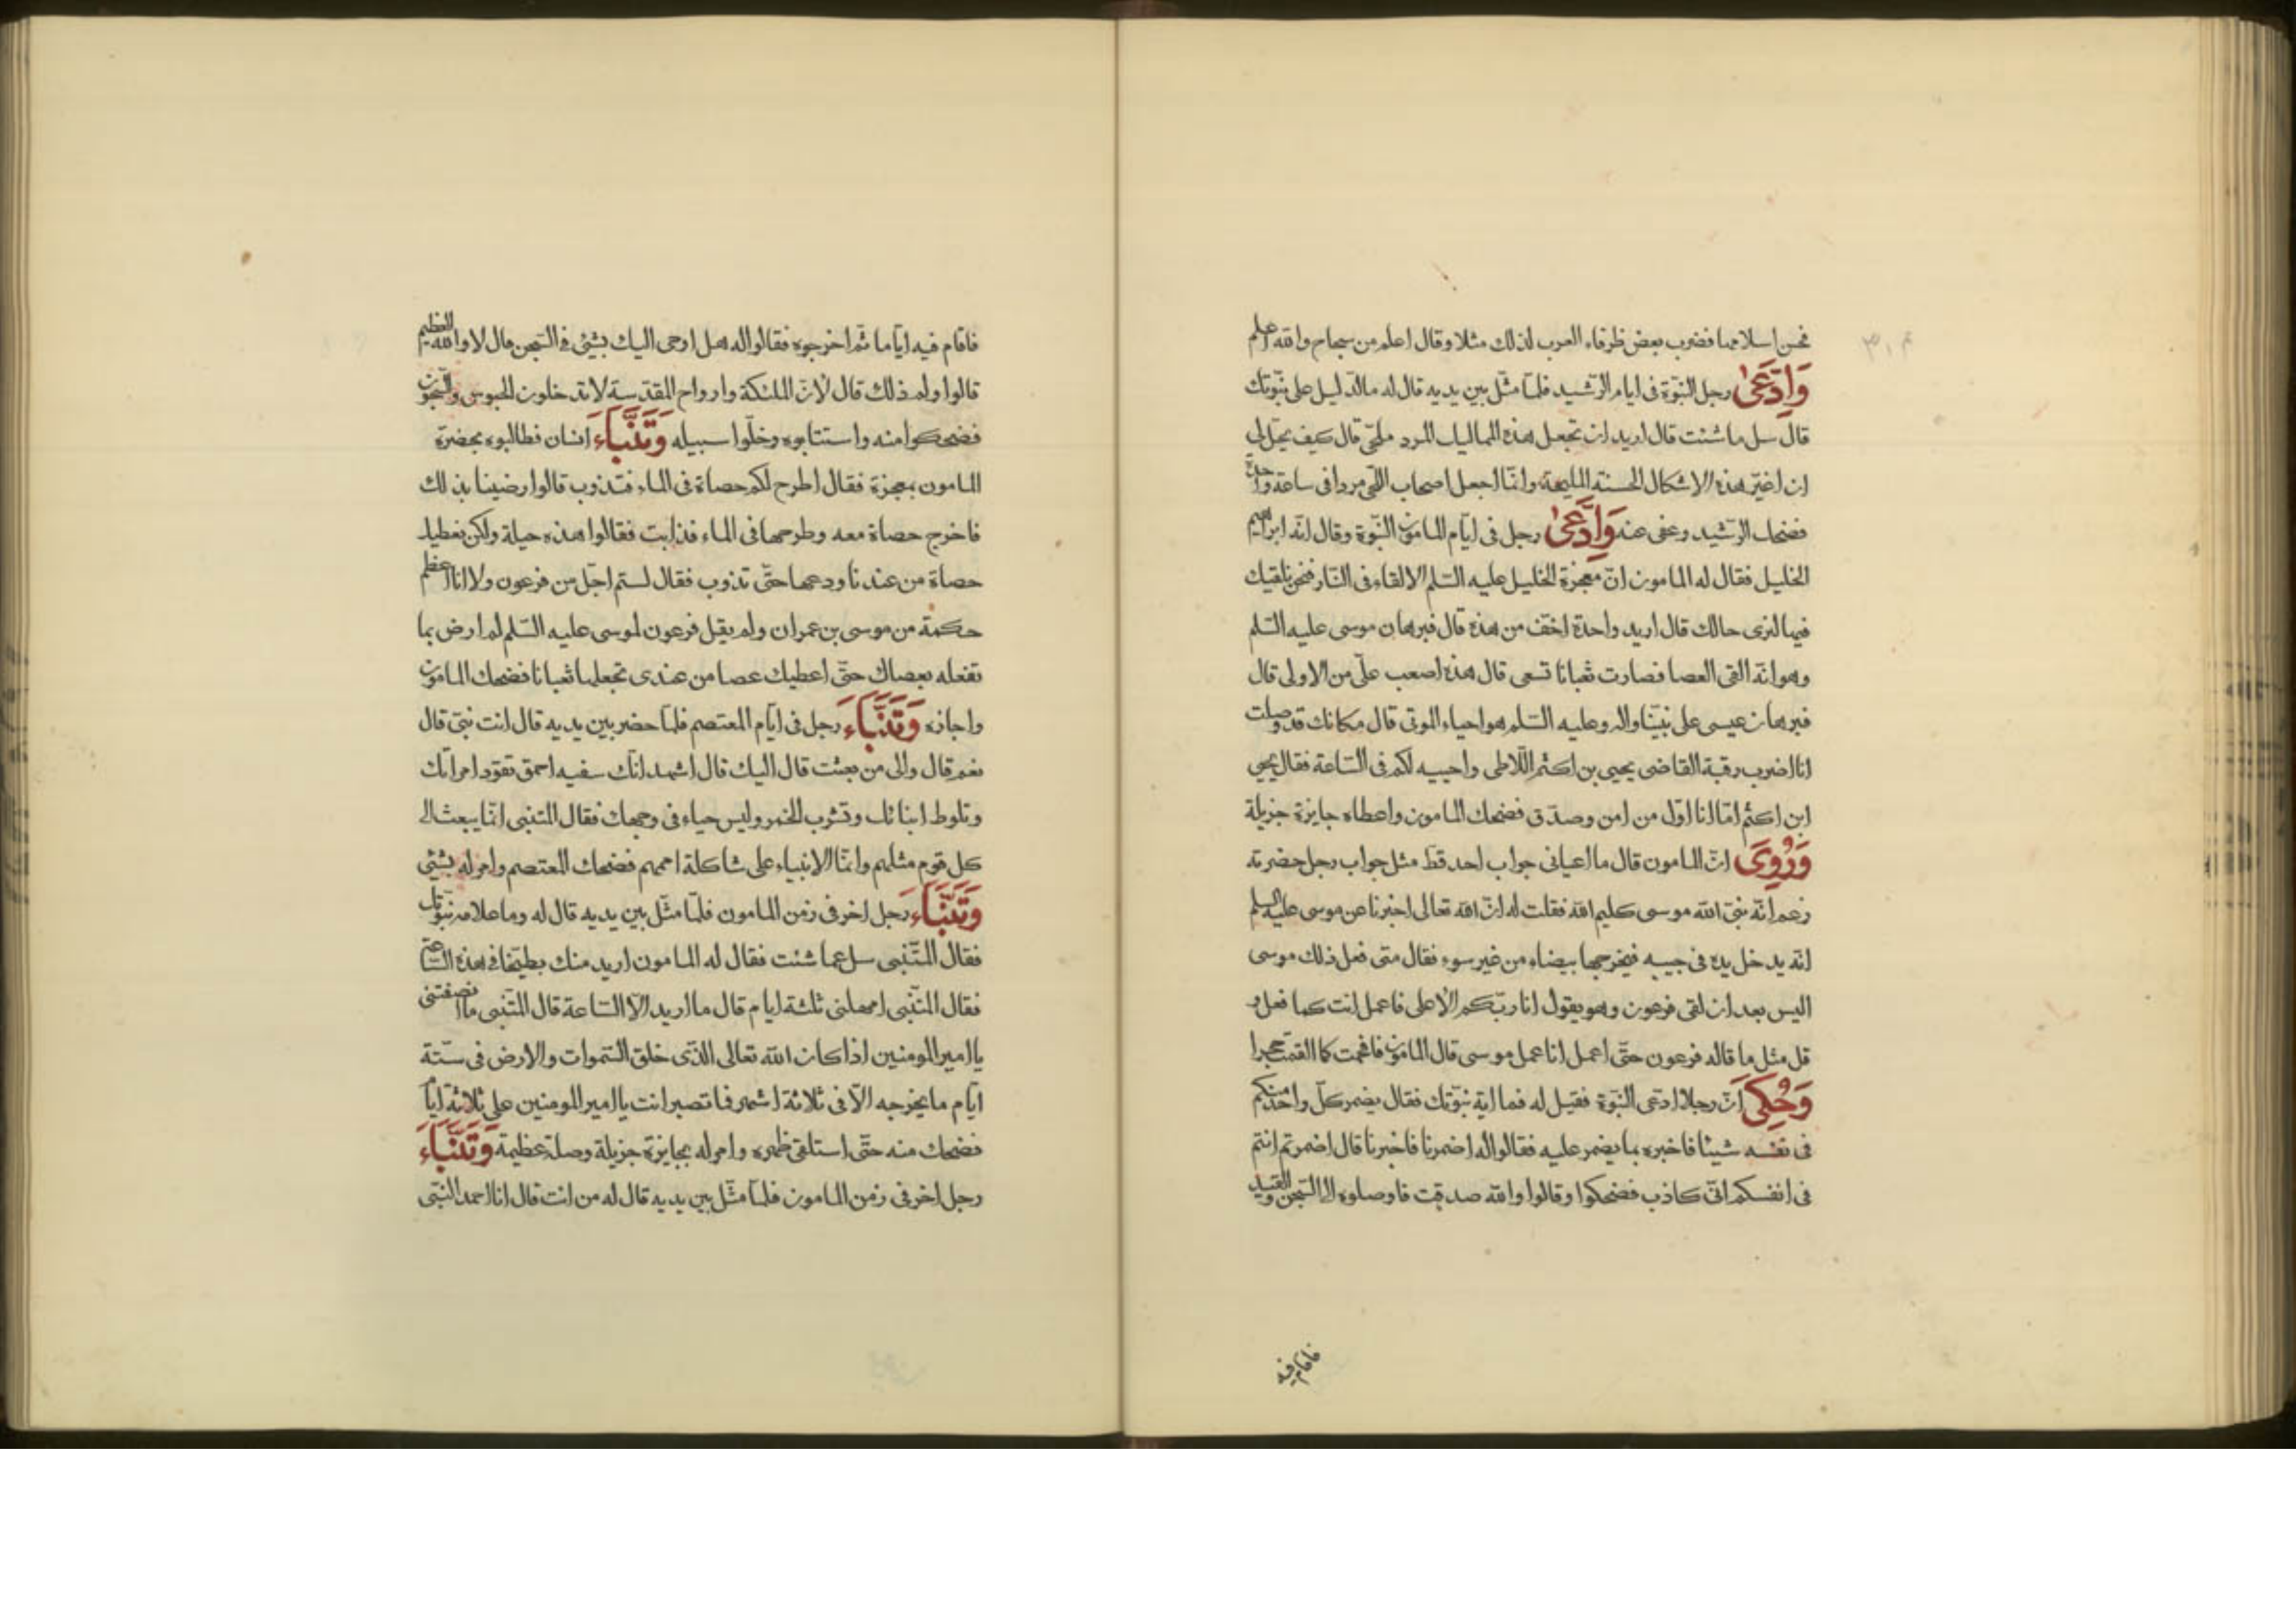 فحسن اسلامهما فضرب بعض ظرفاء العرب لذلك مثلا وقال اعلم من سجاح والله اعلم
وَادَّعىٰ رجل النبّوة فى ايام الرّشيد فلمّا مثّل بين يديه قال له ماالدّليل على نبّوتك
قال سل ما شئت قال اريد ان تجعل هذه المماليك المرد ملحى قال كيف يحّل لى
ان اغيّر هذه الاشكال الحسنة المليحة وانّا اجعل اصحاب اللّحى مردا فى ساعة واحدة
فضحك الرّشيد وعفى عنه وَادَّعىٰ رجل فى ايّام المامون النبّوة وقال انّه ابراهيم
الخليل فقال له المامون انّ معجزة الخليل عليه السّلم الالقاء فى النّار فنحن نلقيك
فيها لنرى حالك قال اريد واحدة اخفّ من هذه قال فبرهان موسى عليه السّلم
وهو انّه القى العصا فصارت ثعبانا تسعى قال هذه اصعب علّى من الاولى قال
فبرهان عيسى على نبيّنا واله وعليه السّلم هو احياء الموتى قال مكانك قد وصلت
انا اضرب رقبة القاضى يحيى بن اكثم اللّاطى واحييه لكم فى السّاعة فقال يحيى
ابن اكثم امّا انا اوّل من امن وصدّق فضحك المامون واعطاه جايزة جزيلة
وَرُوِىَ انّ المامون قال ما اعيانى جواب احد قطّ مثل جواب رجل حضرته
زعم انّه نبىّ الله موسى كليم الله فقلت له انّ الله تعالى اخبرنا عن موسى عليه السلم
انّه يدخل يده فى جيبه فيخرجها بيضاء من غير سوء فقال متى فعل ذلك موسى
اليس بعد ان لقى فرعون وهو يقول انا ربّكم الاعلى فاعمل انت كما فعل و
قل مثل ما قاله فرعون حتّى اعمل انا عمل موسى قال المامون فافحمت كما القمت حجرا
وَحُكِىَ انّ رجلا ادّعى النبّوة فقيل له فما اية نبّوتك فقال يضمر كلّ واحد منكم
فى نفسه شيئا فاخبره بما يضمر عليه فقالوا له اضمرنا فاخبرنا قال اضمرتم انتم
فى انفسكم انّى كاذب فضحكوا وقالوا والله صدقت فاوصلوه الى السّجن والقيد
فاقام فيه
فاقام فيه ايّاما ثمّ اخرجوه فقالوا له هل اوحى اليك بشئ فى السّجن قال لا والله العظيم
قالوا ولم ذلك قال لانّ الملئكة وارواح المقدّسة لا تدخلون الحبوس والسّجون
فضحكوا منه واستتابوه وخلّوا سبيله وَتَنَبَّاءَ انسان فطالبوه بحضرة
المامون بمعجزة فقال اطرح لكم حصاة فى الماء فتذوب قالوا رضينا بذلك
فاخرج حصاة معه وطرحها فى الماء فذابت فقالوا هذه حيلة ولكن نعطيك
حصاة من عندنا ودعها حتّى تذوب فقال لستم اجّل من فرعون ولا انا اعظم
حكمة من موسى بن عمران ولم يقل فرعون لموسى عليه السّلم لم ارض بما
تفعله بعصاك حتّى اعطيك عصا من عندى تجعلها ثعبانا فضحك المامون
واجازه وَتَنَبَّاءَ رجل فى ايّام المعتصم فلمّا حضر بين يديه قال انت نبىّ قال
نعم قال والى من بعثت قال اليك قال اشهد انّك سفيه احمق تقوّد امراتك
وتلوط ابنائك وتشرب الخمر وليس حياء فى وجهك فقال المتنبى انّما يبعث الى
كل قوم مثلهم وانّما الانبياء على شاكلة اممهم فضحك المعتصم وامر له بشئ
وَتَنَبَّاءَ رجل اخر فى زمن المامون فلمّا مثّل بين يديه قال له وما علامة نبّوتك
فقال المتّنبى سل عما شئت فقال له المامون اريد منك بطيّخا فى هذه السّاعة
فقال المتّنبى امهلنى ثلثة ايام قال ما اريد الّا السّاعة قال المتّنبى ما انصفتنى
يا امير المومنين اذا كان الله تعالى الذّى خلق السّموات والارض فى ستّة
ايّام ما يخرجه الّا فى ثلاثة اشهر فما تصبر انت يا امير المومنين على ثلاثة ايّام
فضحك منه حتّى استلقى ظهره وامر له بجايزة جزيلة وصلة عظيمة وَتَنَبَّاءَ
رجل اخر فى زمن المامون فلمّا مثّل بين يديه قال له من انت قال انا احمد النّبى